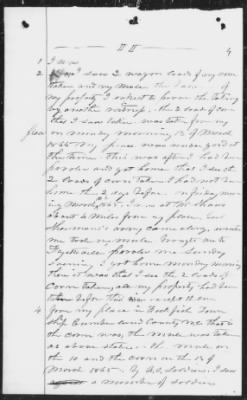 4
1 I was
2 I saw 2 wagon loads of my corn
taken and my mule the
of my property I expect to prove the taking
by another witness. the 2 loads of corn
this I saw taken was taken from my
place on monday morning 13 of March
1865 my place was near
at the time this was after I had been
and got home that I saw the
2 loads of corn taken I had not been
home the 2 days before on friday morn
ing March 1865. I was at Mr Shaws
about miles from my place Gen
Shermans army came along, with
me took my mule. Brought me to
Fayetteville me Sunday
Evening I got home monday morning
then it was that I see the 2 loads of
corn taken, all my property had been
taken before this except them
4 from my place in Rockfish Town
ship Cumberland County N.C. that is
the corn was, the mule was taken
as above stated. the mule on
the 10 and the corn on the 13 of
March 1865 By U.S. soldiers. I saw
a number of soldiers